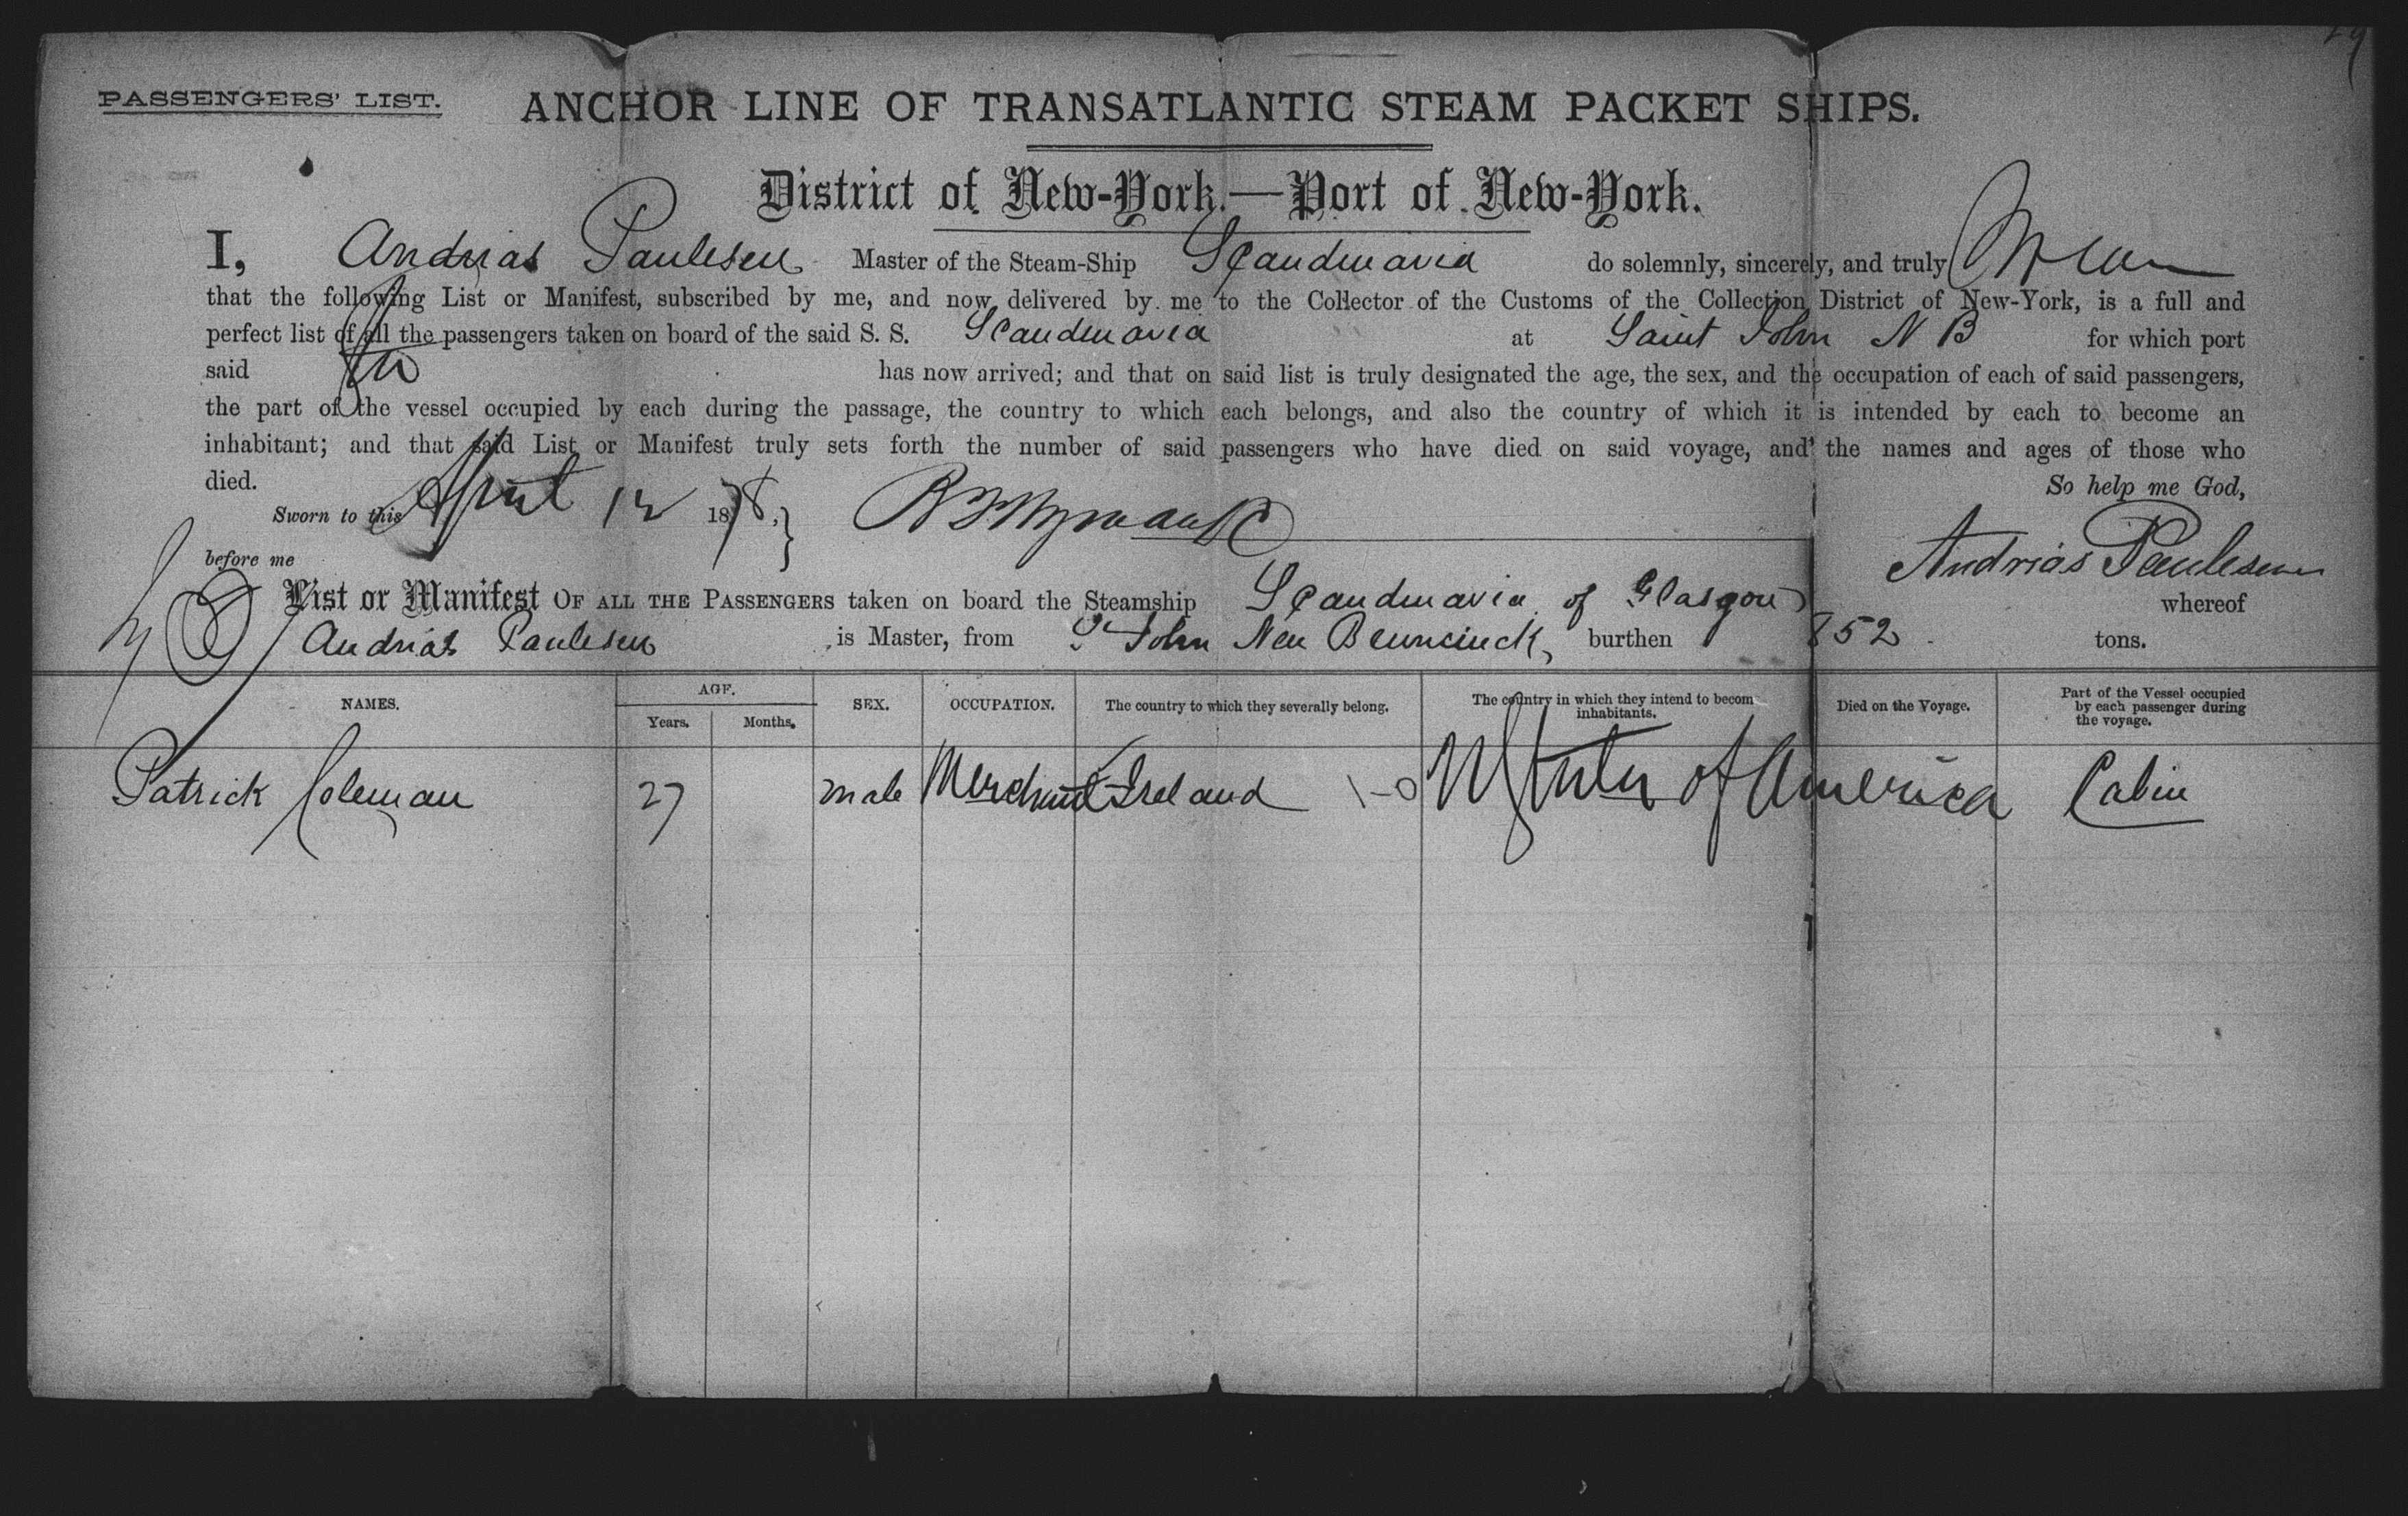 PASSENGERS' LIST. ANCHOR LINE OF TRANSATLANTIC STEAM PACKET SHIPS.
District of New-York.—Port of New-York.
I, Andrias Paulesen Master of the Steam-Ship Scandinavia do solemnly, sincerely, and truly Swear
that the following List or Manifest, subscribed by me, and now delivered by me to the Collector of the Customs of the Collection District of New-York, is a full and
perfect list of all the passengers taken on board of the said S. S. Scandinavia at Saint John N B for which port
said has now arrived; and that on said list is truly designated the age, the sex, and the occupation of each of said passengers,
the part of the vessel occupied by each during the passage, the country to which each belongs, and also the country of which it is intended by each to become an
inhabitant; and that said List or Manifest truly sets forth the number of said passengers who have died on said voyage, and the names and ages of those who
died. So help me God,
Sworn to this April 12 1878,
before me Andrias Paulesen
List or Manifest OF ALL THE PASSENGERS taken on board the Steamship Scandinavia of Glasgow whereof
Andrias Paulesen is Master, from St John New Brunsinck, burthen 852 tons.
NAMES. AGE. Years. Months. SEX. OCCUPATION. The country to which they severally belong. The country in which they intend to becom inhabitants. Died on the Voyage. Part of the Vessel occupied by each passenger during the voyage.
Patrick Coleman 27 male Merchant Ireland of America Cabin